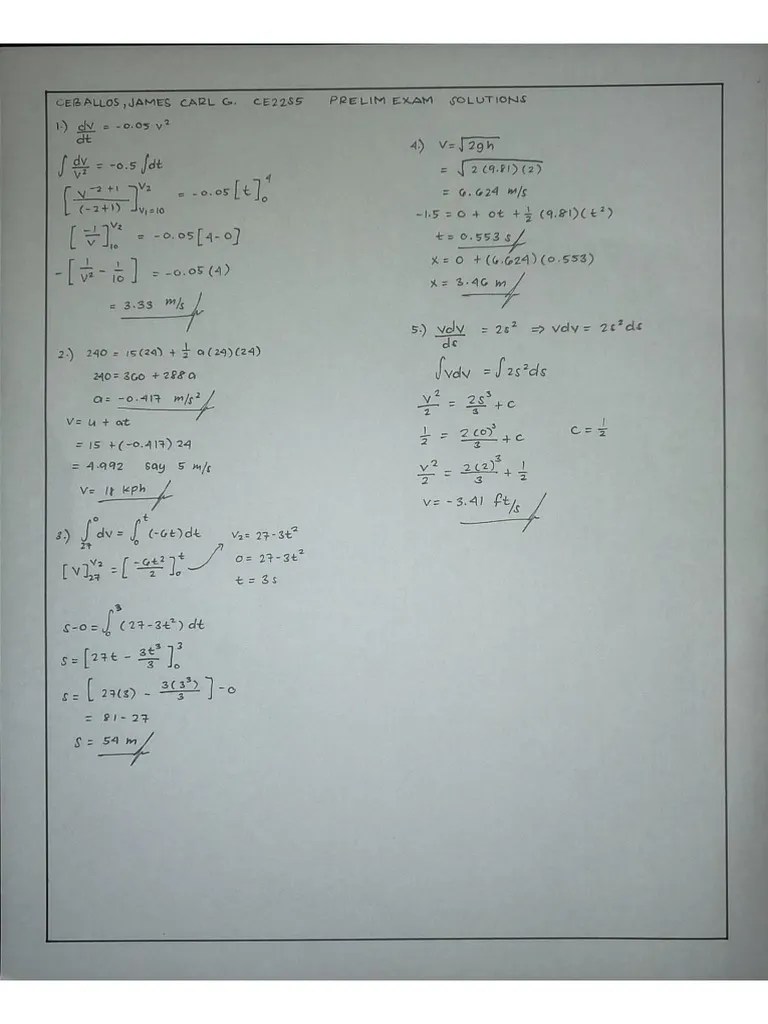 CEBALLOS, JAMES CARL G. CE22S5 PRELIM EXAM SOLUTIONS
1.) dv/dt = -0.05 v²
∫ dv/v² = -0.5 ∫dt
[v^(-2+1)/(-2+1)]_(v₁=10)^(v₂) = -0.05 [t]_0^4
[-1/v]_10^(v₂) = -0.05 [4-0]
-[1/v² - 1/10] = -0.05 (4)
= 3.33 m/s
2.) 240 = 15(24) + 1/2 a(24)(24)
240 = 360 + 288a
a = -0.417 m/s²
V = u + at
= 15 + (-0.417) 24
= 4.992 say 5 m/s
V = 18 kph
3.) ∫_27^0 dv = ∫_0^t (-6t) dt
[V]_27^(V₂) = [-6t²/2]_0^t
V₂ = 27-3t²
0 = 27-3t²
t = 3s
s-0 = ∫_0^3 (27-3t²) dt
s = [27t - 3t³/3]_0^3
s = [27(3) - 3(3³)/3] - 0
= 81-27
s = 54 m
4.) V = √2gh
= √2(9.81)(2)
= 6.624 m/s
-1.5 = 0 + 0t + 1/2 (9.81)(t²)
t = 0.553 s
x = 0 + (6.624)(0.553)
x = 3.46 m
5.) vdv/ds = 2s² ⇒ vdv = 2s²ds
∫vdv = ∫2s²ds
v²/2 = 2s³/3 + c
1/2 = 2(0)³/3 + c c = 1/2
v²/2 = 2(2)³/3 + 1/2
v = -3.41 ft/s